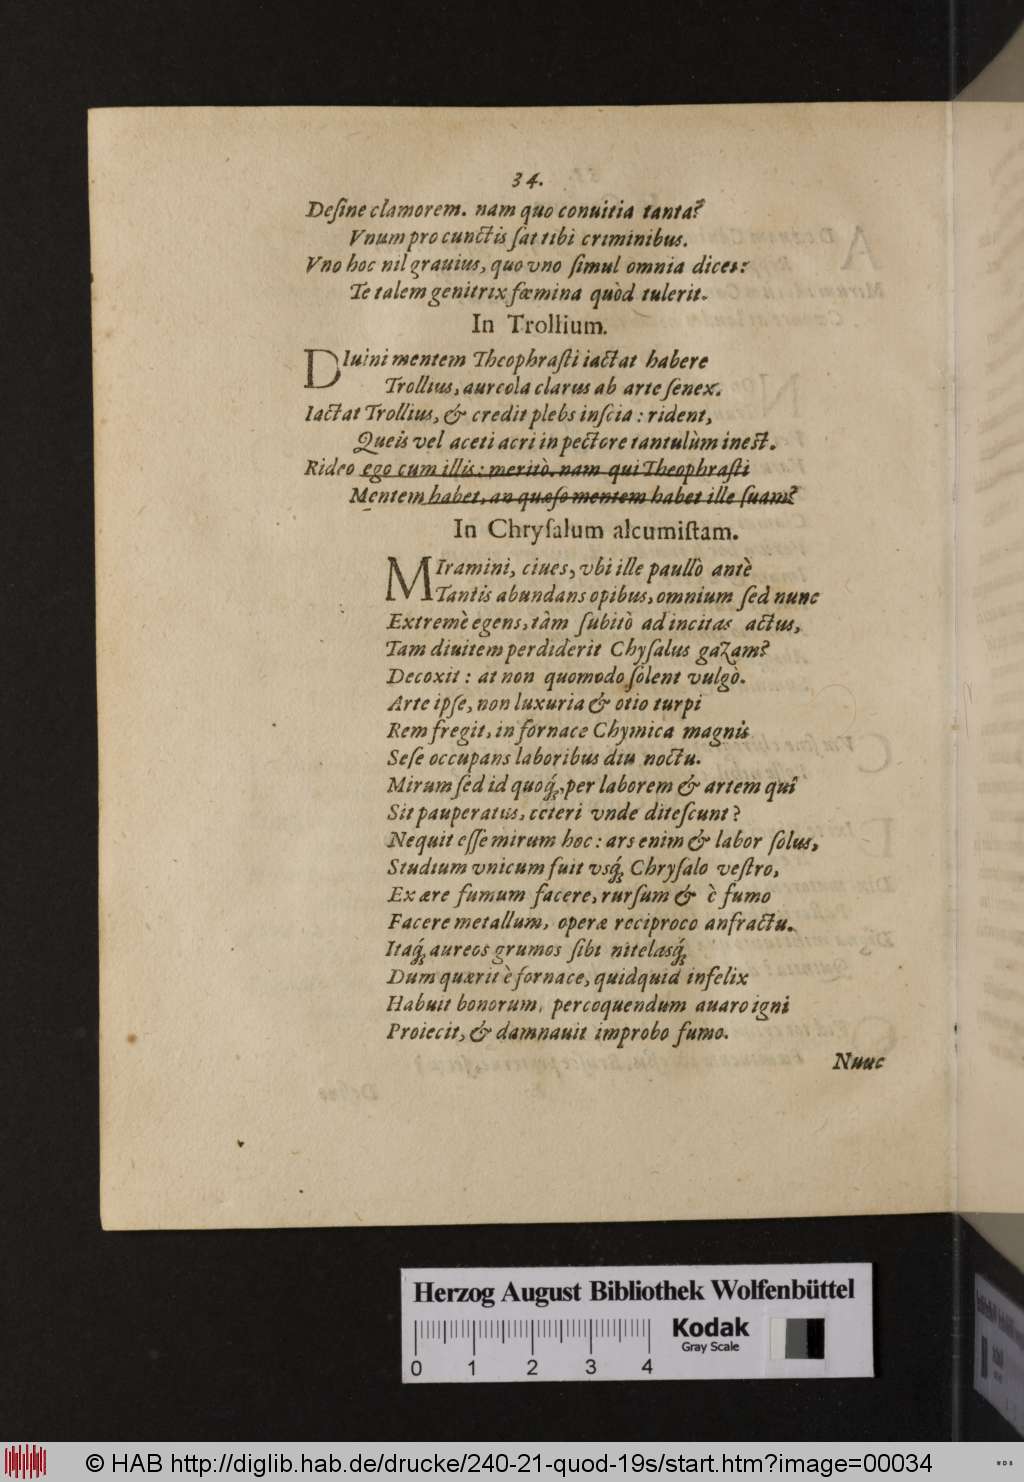 34.
Deſine clamorem. nam quo conuitia tanta?
Vnum pro cunctis ſat tibi criminibus.
Vno hoc nil grauius, quo vno ſimul omnia dices:
Te talem genitrix fœmina quòd tulerit.
In Trollium.
DIuini mentem Theophraſti iactat habere
Trollius, aureola clarus ab arte ſenex.
Iactat Trollius, & credit plebs inſcia: rident,
Queis vel aceti acri in pectore tantulùm inest.
Rideo ego cum illis: meritò. nam qui Theophraſti
Mentem habet, an quæſo mentem habet ille ſuam?
In Chryſalum alcumiſtam.
MIramini, ciues, vbi ille paullò antè
Tantis abundans opibus, omnium ſed nunc
Extremè egens, tàm ſubitò ad incitas actus,
Tam diuitem perdiderit Chyſalus gazam?
Decoxit: at non quomodo ſolent vulgò.
Arte ipſe, non luxuria & otio turpi
Rem fregit, in fornace Chymica magnis
Seſe occupans laboribus diu noctu.
Mirum ſed id quoq́;, per laborem & artem quî
Sit pauperatus, ceteri vnde diteſcunt?
Nequit eſſe mirum hoc: ars enim & labor ſolus,
Studium vnicum fuit vsq́; Chryſalo veſtro,
Ex ære fumum facere, rurſum & è fumo
Facere metallum, operæ reciproco anfractu.
Itaq́; aureos grumos ſibi nitelasq́;
Dum quærit è fornace, quidquid infelix
Habuit bonorum, percoquendum auaro igni
Proiecit, & damnauit improbo fumo.
Nuuc
Herzog August Bibliothek Wolfenbüttel
Kodak
Gray Scale
0 1 2 3 4
© HAB http://diglib.hab.de/drucke/240-21-quod-19s/start.htm?image=00034